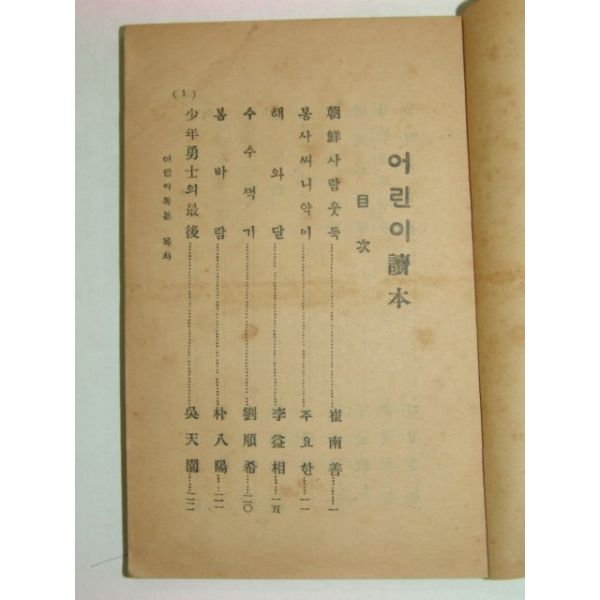 어린이讀本
目次
朝鮮사람웃둑……崔南善……一
봉사씨니약이……주요한……一一
해와달……李益相……一五
수수먹기……劉順希……二〇
봄바람……朴八陽……二一
少年勇士의最後……吳天園……二二
어린이독본 목차
(1)